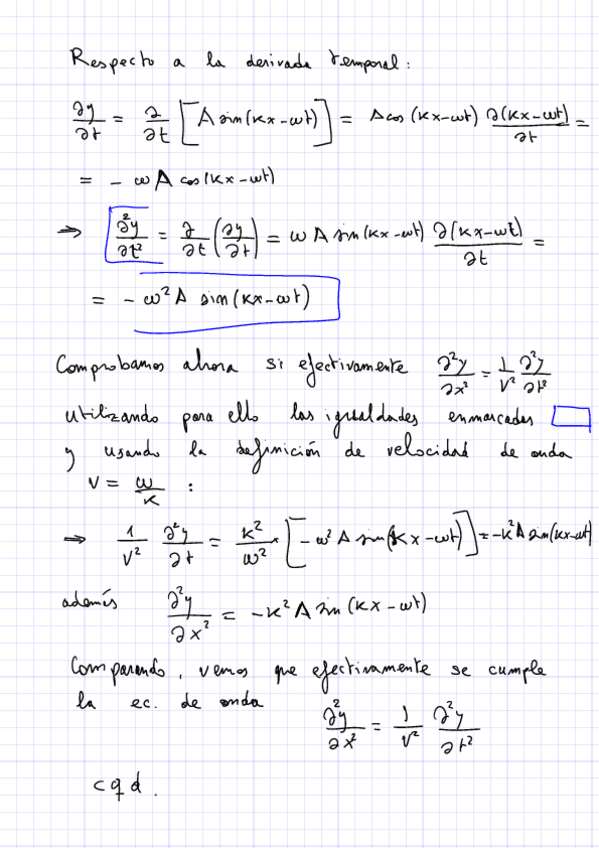 Respecto a la derivada temporal:
∂y/∂t = ∂/∂t [A sin(kx-ωt)] = A cos(kx-ωt) ∂(kx-ωt)/∂t =
= - ω A cos(kx-ωt)
⇒ ∂²y/∂t² = ∂/∂t (∂y/∂t) = ω A sin(kx-ωt) ∂(kx-ωt)/∂t =
= - ω² A sin(kx-ωt)
Comprobamos ahora si efectivamente ∂²y/∂x² = 1/V² ∂²y/∂t²
utilizando para ello las igualdades enmarcadas
y usando la definición de velocidad de onda
V = ω/k :
⇒ 1/V² ∂²y/∂t = k²/ω² · [-ω² A sin(kx-ωt)] = -k² A sin(kx-ωt)
además ∂²y/∂x² = -k² A sin(kx-ωt)
Comparando, vemos que efectivamente se cumple
la ec. de onda ∂²y/∂x² = 1/V² ∂²y/∂t²
cqd.